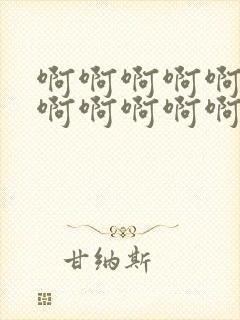 啊啊啊啊啊
啊啊啊啊啊
甘纳斯